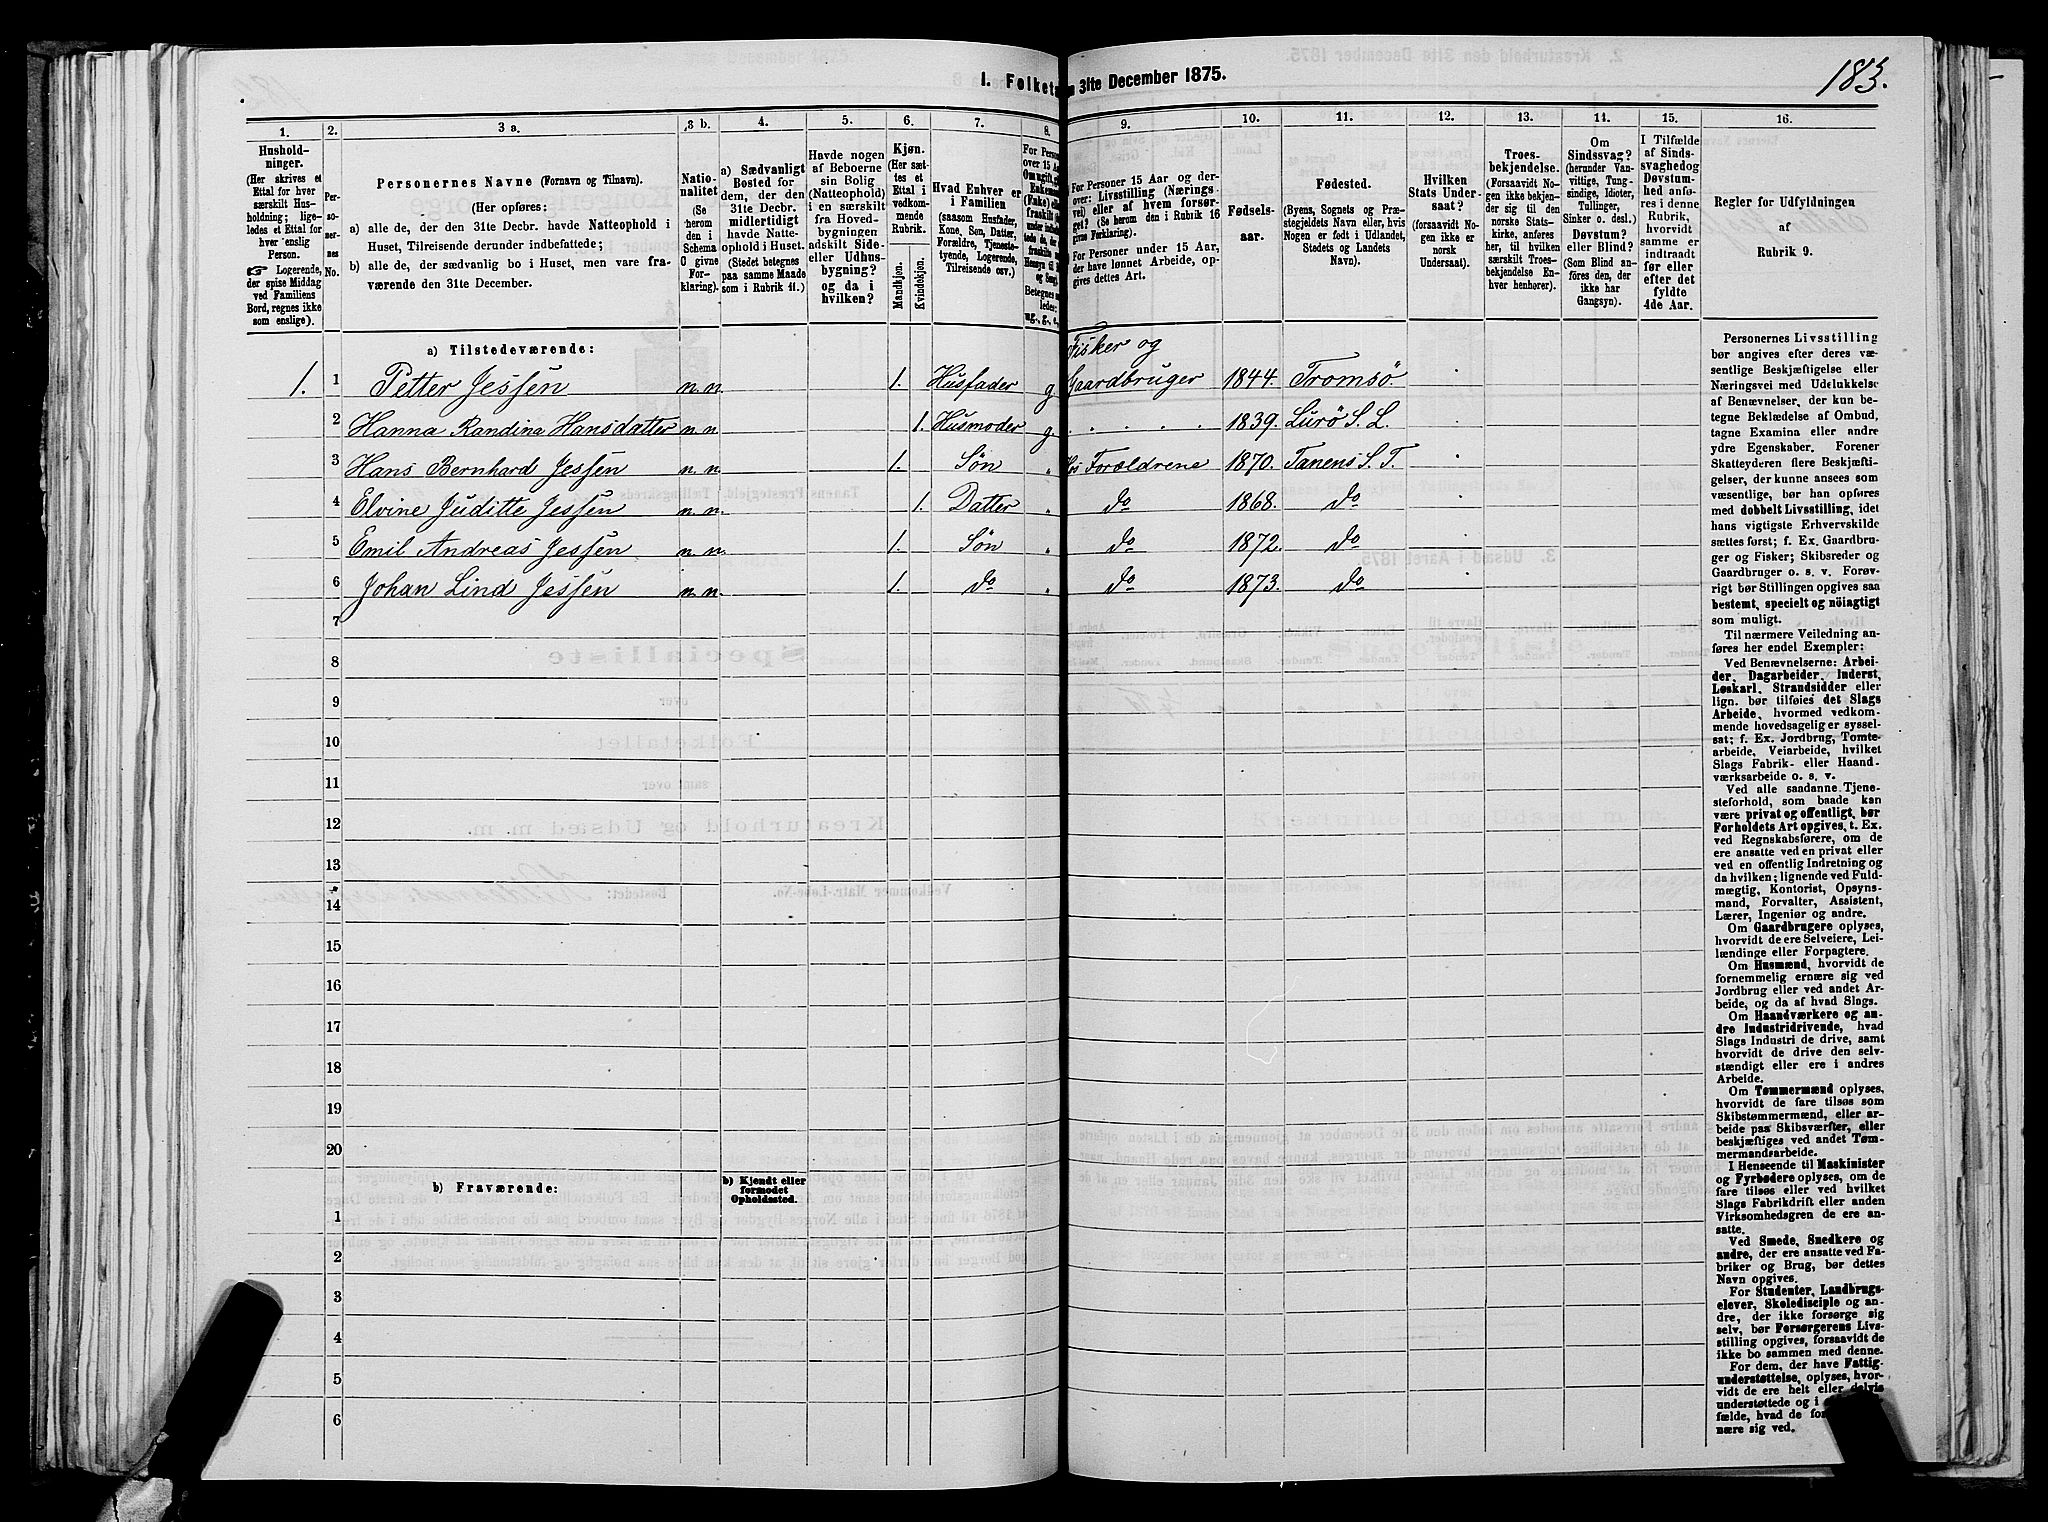 1. Folketa
n 31te December 1875.
183.
1.
2.
3 a.
3 b.
4.
5.
6.
7.
8.
9.
10.
11.
12.
13.
14.
15.
16.
Hushold-
ninger.
(Her skrives et
Ettal for hver
særskilt Hus-
holdning; lige-
ledes et Ettal
for hver enslig
Person.
☞ Logerende,
der spise Middag
ved Familiens
Bord, regnes ikke
som enslige).
Per-
so-
ner-
nes
No.
Personernes Navne (Fornavn og Tilnavn).
(Her opføres:
a) alle de, der den 31te Decbr. havde Natteophold i
Huset, Tilreisende derunder indbefattede;
b) alle de, der sædvanlig bo i Huset, men vare fra-
værende den 31te December.
Natio-
nalitet
(Se
herom
den i
Schema
O givne
For-
klaring).
a) Sædvanligt
Bosted for
dem, der den
31te Decbr.
midlertidigt
havde Natte-
ophold i Huset.
(Stedet betegnes
paa samme Maade
som i Rubrik 11.)
Havde nogen
af Beboerne
sin Bolig
(Natteophold)
i en særskilt
fra Hoved-
bygningen
adskilt Side-
eller Udhus-
bygning?
og da i
hvilken?
Kjøn.
(Her sæt-
tes et
Ettal i
vedkom-
mende
Rubrik.
Mandkjøn.
Kvindekjøn.
Hvad Enhver er
i Familien
(saasom Husfader,
Kone, Søn, Datter,
Forældre, Tjeneste-
tyende, Logerende,
Tilreisende osv.)
For Personer 15 Aar og der-
over: Livsstilling (Nærings-
vei) eller af hvem forsør-
get? (Se herom den i Rubrik 16
givne Forklaring).
For Personer under 15 Aar,
der have lønnet Arbeide, op-
gives dettes Art.
Fødsels-
aar.
Fødested.
(Byens, Sognets og Præ-
stegjeldets Navn eller, hvis
Nogen er født i Udlandet,
Stedets og Landets
Navn).
Hvilken
Stats Under-
saat?
(forsaavidt No-
gen ikke er
norsk
Undersaat).
Troes-
bekjendelse.
(Forsaavidt No-
gen ikke bekjen-
der sig til den
norske Stats-
kirke, anføres
her, til hvilken
særskilt Troes-
bekjendelse En-
hver henhører).
Om
Sindssvag?
(herunder Van-
vittige, Tung-
sindige, Idioter,
Tullinger,
Sinker o. desl.)
Døvstum?
eller Blind?
(Som Blind an-
føres den, der
ikke har
Gangsyn).
I Tilfælde
af Sinds-
svaghed og
Døvstum-
hed anfø-
res i denne
Rubrik,
hvorvidt
samme er
indtraadt
før eller
efter det
fyldte
4de Aar.
Regler for Udfyldningen
af
Rubrik 9.
a) Tilstedeværende:
Fisker og
1. 1 Petter Jessen n.n. 1. Husfader g Gaardbruger 1844. Tromsø.
2 Hanna Randina Hansdatter n.n. 1. Husmoder g. 1839. Lurö S. L.
3 Hans Bernhard Jessen n.n. 1. Søn " Hos Forældrene 1870. Tanens S. T.
4 Elvine Juditte Jessen n.n. 1. Datter " do 1868. do
5 Emil Andreas Jessen n.n. 1. Søn " do 1872. do
6 Johan Lind Jessen n.n. 1. do " do 1873. do
7
8
9
10
11
12
13
14
15
16
17
18
19
20
b) Fraværende:
b) Kjendt eller
formodet
Opholdssted.
1
2
3
4
5
6
Personernes Livsstilling
bør angives efter deres væ-
sentlige Beskjæftigelse eller
Næringsvei med Udelukkelse
af Benævnelser, der kun be-
tegne Beklædelse af Ombud,
tagne Examina eller andre
ydre Egenskaber. Forener
Skatteyderen flere Beskjæf-
tigelser, der kunne ansees som
væsentlige, bør han opføres
med dobbelt Livsstilling, idet
hans vigtigste Erhvervskilde
sættes først; f. Ex. Gaardbru-
ger og Fisker; Skibsreder og
Gaardbruger o. s. v. Forøv-
rigt bør Stillingen opgives saa
bestemt, specielt og nöiagtigt
som muligt.
Til nærmere Veiledning an-
føres her endel Exempler:
Ved Benævnelserne: Arbei-
der, Dagarbeider, Inderst,
Løskarl, Strandsidder eller
lign. bør tilføies det Slags
Arbeide, hvormed vedkom-
mende hovedsagelig er syssel-
sat; f. Ex. Jordbrug, Tomte-
arbeide, Veiarbeide, hvilket
Slags Fabrik- eller Haand-
værksarbeide o. s. v.
Ved alle saadanne Tjene-
steforhold, som baade kan
være privat og offentligt, bør
Forholdets Art opgives, t. Ex.
ved Regnskabsførere, om de
ere ansatte ved en privat eller
ved en offentlig Indretning og
da hvilken; lignende ved Fuld-
mægtig, Kontorist, Opsyns-
mand, Forvalter, Assistent,
Lærer, Ingeniør og andre.
Om Gaardbrugere oplyses,
hvorvidt de ere Selveiere, Lei-
lændinge eller Forpagtere.
Om Husmænd, hvorvidt de
fornemmelig ernære sig ved
Jordbrug eller ved andet Ar-
beide, og da af hvad Slags.
Om Haandværkere og an-
dre Industridrivende, hvad
Slags Industri de drive, samt
hvorvidt de drive den selv-
stændigt eller ere i andres
Arbeide.
Om Tømmermænd oplyses,
hvorvidt de fare tilsøs som
Skibstømmermænd, eller ar-
beide paa Skibsværfter, eller
beskjæftiges ved andet Tøm-
mermandsarbeide.
I Henseende til Maskinister
og Fyrbødere oplyses, om de
fare tilsøs eller ved hvilket
Slags Fabrikdrift eller anden
Virksomhedsgren de ere an-
satte.
Ved Smede, Snedkere og
andre, der ere ansatte ved Fa-
briker og Brug, bør dettes
Navn opgives.
For Studenter, Landbrugs-
elever, Skoledisciple og an-
dre, der ikke forsørge sig
selv, bør Forsørgerens Livs-
stilling opgives, forsaavidt de
ikke bo sammen med denne.
For dem, der have Fattig-
understøttelse, oplyses, hvor-
vidt de ere helt eller delvis
understøttede og i
fælde, hvad de
nære sig ved.